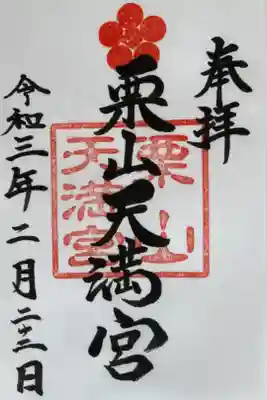 奉拝
栗山天満宮
栗山
天満宮
令和三年二月二十三日